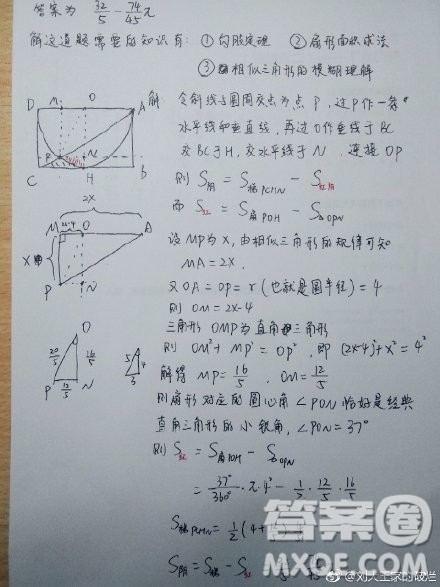 答案为 32/5 - 74/45 π
解这道题需要的知识有: ①勾股定理 ②扇形面积求法
③相似三角形的模糊理解
解: 令斜线与圆周交点为点 P, 过 P 作一条
水平线和垂直线, 再过 O 作垂线于 BC
交 BC 于 H, 交水平线于 N. 连接 OP
D M O A
P N
C H B
则 S阴 = S梯PCHN - S红阴
而 S红 = S扇POH - S△OPN
2X
M 2X-4 O A
X
P N
设 MP 为 X, 由相似三角形的规律可知
MA = 2X.
又 OA = OP = r (也就是圆半径) = 4
则 OM = 2X-4
三角形 OMP 为直角三角形
则 OM² + MP² = OP², 即 (2X-4)² + X² = 4²
解得 MP = 16/5, OM = 12/5
O
20/5 16/5
P 12/5 N
5 4
3
则扇形对应的圆心角 ∠PON 恰好是经典
直角三角形的小锐角, ∠PON = 37°
则 S红 = S扇POH - S△OPN
= 37°/360° · π · 4² - 1/2 · 12/5 · 16/5
S梯PCHN = 1/2 (4+
S阴 = S梯 - S红
答案圈
MXQE.COM
@刘大工家的战洋